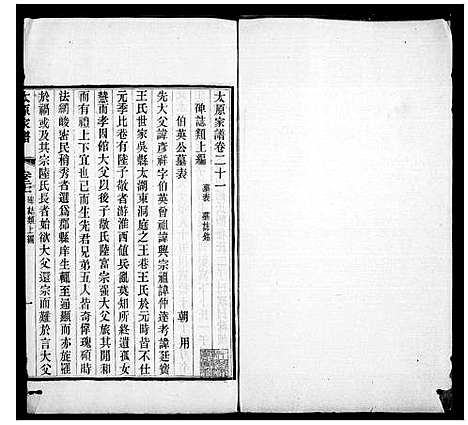 太原家譜卷二十一
碑誌類上編 墓表 墓誌銘
伯英公墓表
朝用
先大父諱彥祥字伯英曾祖諱興宗祖諱仲達考諱廷寶
王氏世家吳縣太湖東洞庭之王巷王氏於元時皆不仕
元季比巷有陸子敬者游淮西値兵亂莫知所終遺孤女
慧而孝因贅大父於陸子敬氏陸富宗强大父旅其間和
而有禮上下宜也已而生先君兄弟五人皆奇偉瑰碩時
法網峻密民稍秀者選爲郡縣庠生輒至通顯而亦旋罹
於禍或及其宗陸氏長者始欲大父還宗而難於言大父
太原家譜 卷二十一 碑誌類上編 一